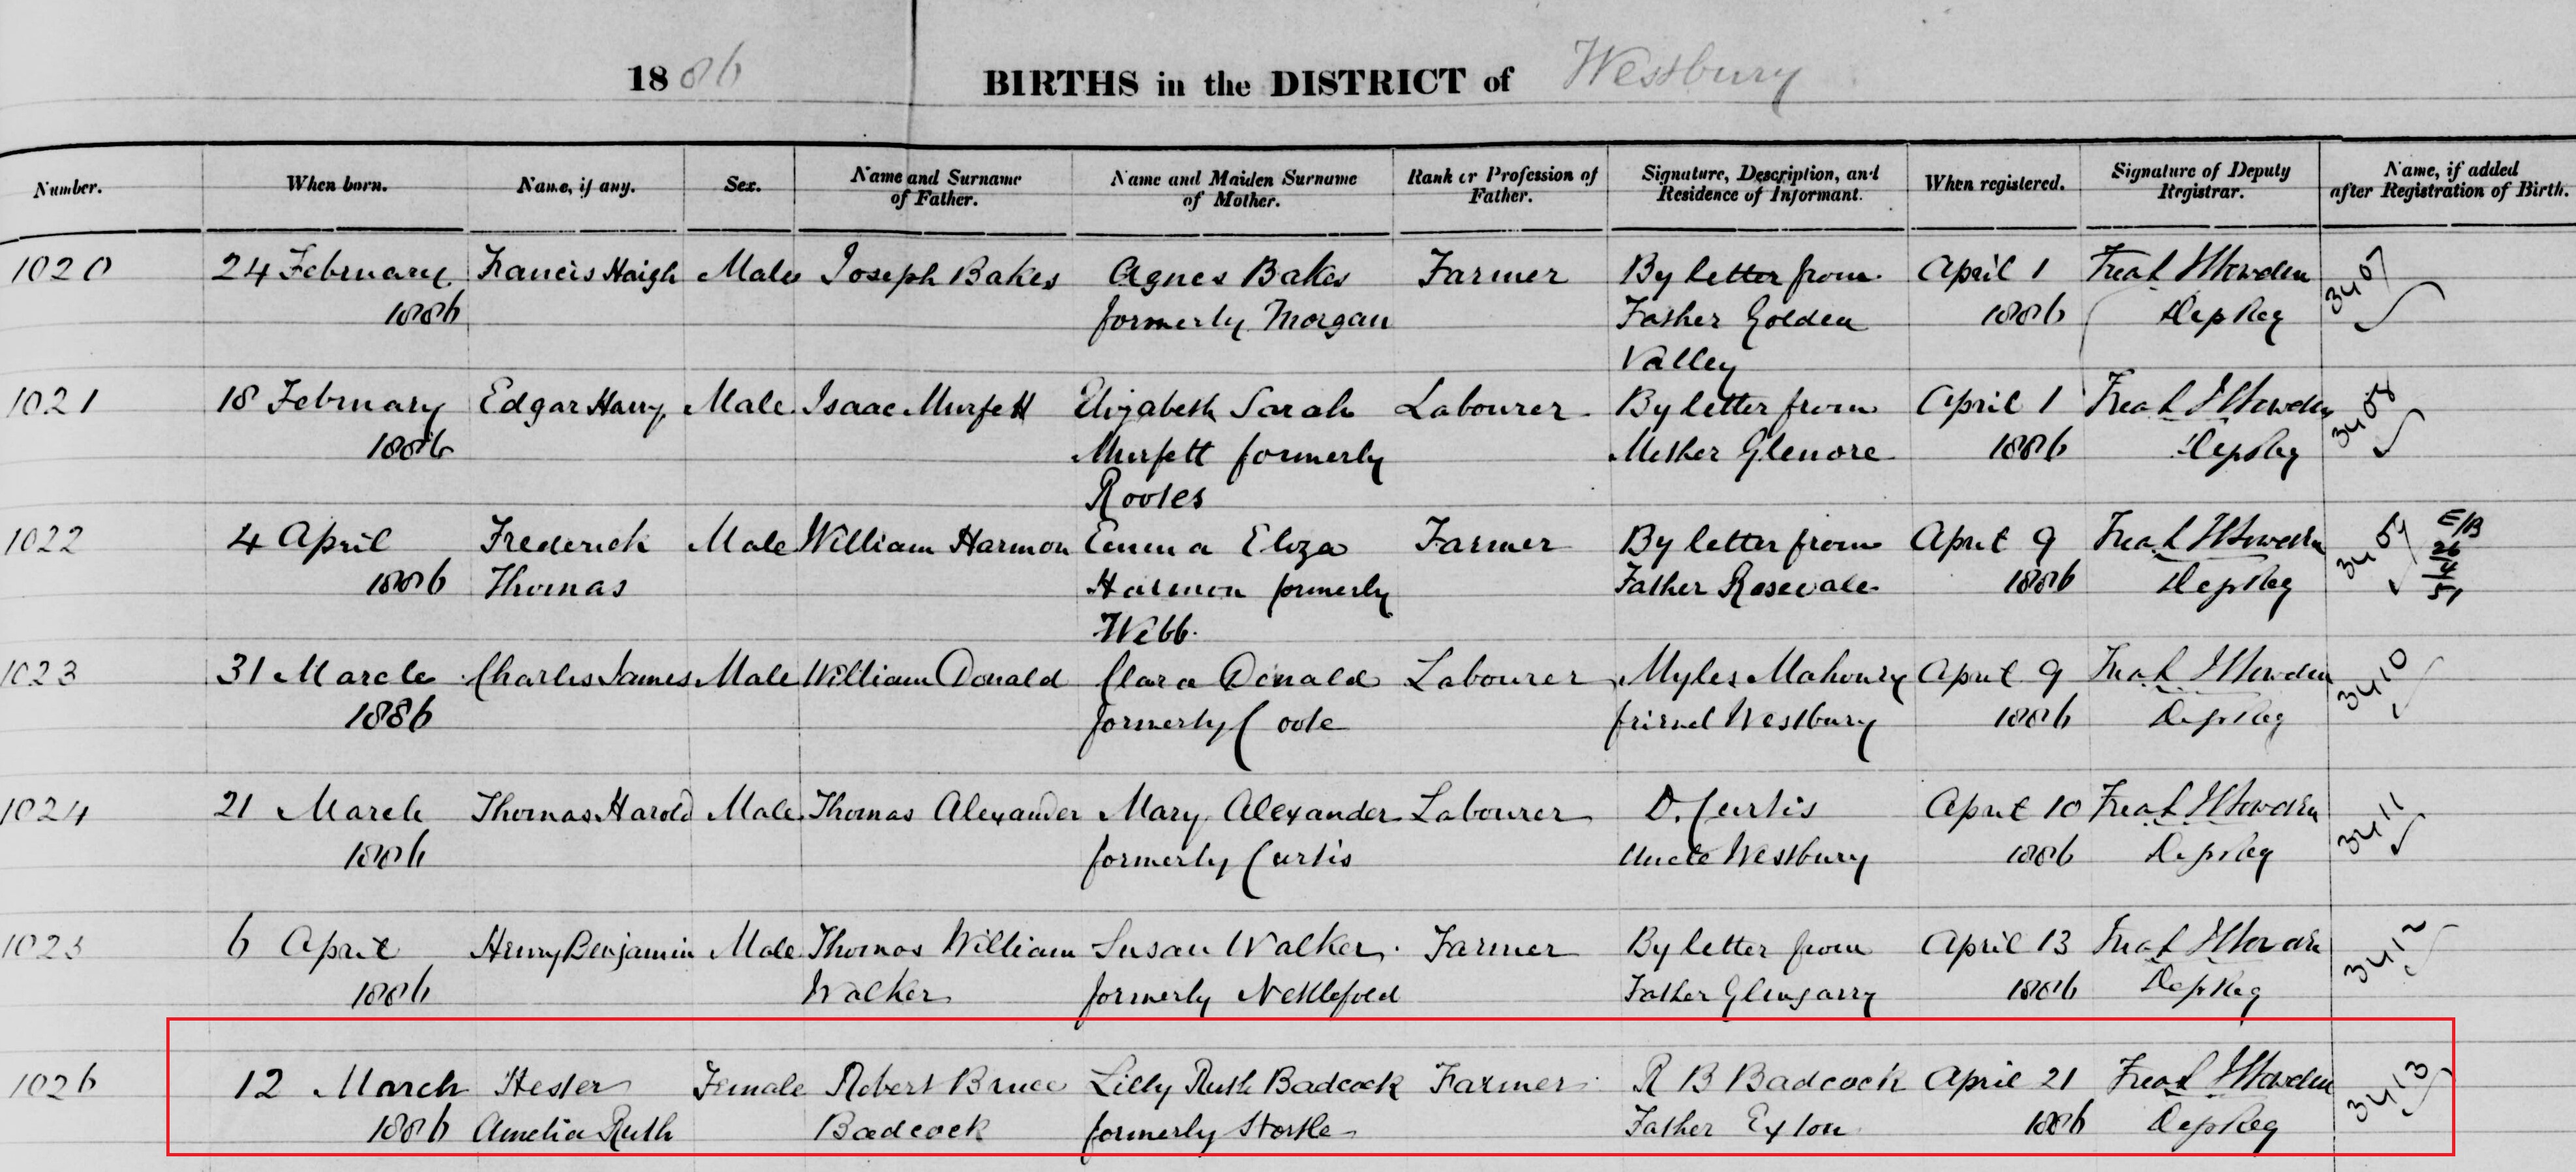 1886 BIRTHS in the DISTRICT of Westbury
Number. When born. Name, if any. Sex. Name and Surname of Father. Name and Maiden Surname of Mother. Rank or Profession of Father. Signature, Description, and Residence of Informant. When registered. Signature of Deputy Registrar. Name, if added after Registration of Birth.
1020 24 February Francis Haigh Male Joseph Bakes Agnes Bakes Farmer By letter from April 1 3407
1886 formerly Morgan Father Golden 1886 Dep Reg
Valley
1021 18 February Edgar Harry Male Isaac Murfett Elizabeth Sarah Labourer By letter from April 1 3408
1886 Murfett formerly Mother Glenore 1886 Dep Reg
1022 4 April Frederick Male William Harmon Emma Eliza Farmer By letter from April 9 3409 E/B
1886 Thomas Harmon formerly Father Rosevale 1886 Dep Reg 26 4 51
Webb.
1023 31 March Charles James Male William Donald Clara Donald Labourer Myles Mahoney April 9 3410
1886 formerly Coole friend Westbury 1886 Dep Reg
1024 21 March Thomas Harold Male Thomas Alexander Mary Alexander Labourer D. Curtis April 10 3411
1886 formerly Curtis Uncle Westbury 1886 Dep Reg
1025 6 April Henry Benjamin Male Thomas William Susan Walker Farmer By letter from April 13 3412
1886 Walker formerly Nettlefold Father Glengarry 1886 Dep Reg
1026 12 March Hester Female Robert Bruce Lilly Ruth Badcock Farmer R B Badcock April 21 3413
1886 Amelia Ruth Badcock formerly Father Exton 1886 Dep Reg